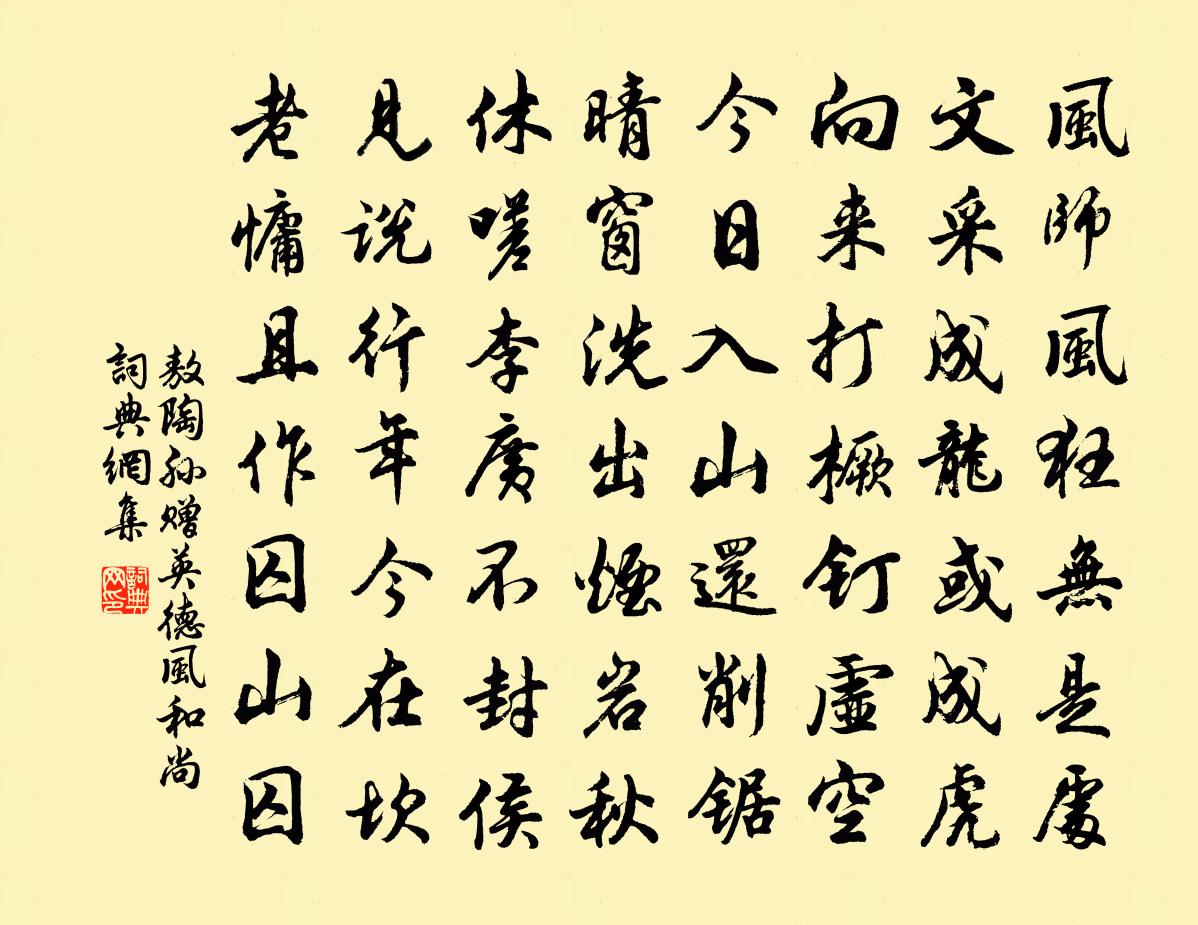 風師風狂無是處
文采成龍或成虎
向来打橛釘虛空
今日入山還削鋸
晴窗洗出煙岩秋
休嗟李廣不封侯
見說行年今在坎
老慵且作囚山囚
敖陶孙贈英德風和尚
詞典網集
詞典网印